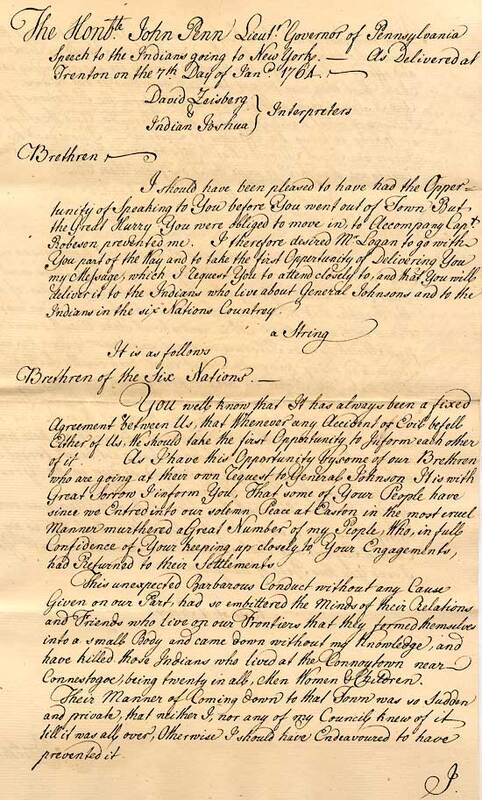 The Honble. John Penn Lieut. Governor of Pennsylvania
Speech to the Indians going to New York. — As Delivered at
Trenton on the 7th Day of Jand. 1764. —
David Zeisberg
&
Indian Joshua } Interpreters
Brethren
I should have been pleased to have had the Opper=
tunity of Speaking to You before You went out of Town But
the Great Hurry You were obliged to move in, to Accompany Capt.
Robeson prevented me. I therefore desired Mr. Logan to go with
You part of the Way and to take the first Opportunity of Delivering You
my Message, which I request You to attend closely to, and that You will
deliver it to the Indians who live about General Johnsons and to the
Indians in the six Nations Countrey.
a String
It is as follows
Brethren of the Six Nations. —
You well know that It has always been a fixed
Agreement between Us, that Whenever any Accident of Evil befell
Either of Us, We should take the first Opportunity to Inform each other
of it As I have this Opportunity by some of our Brethren
who are going at their own request to General Johnson It is with
Great Sorrow I inform You, That some of Your People have
since we Entred into our solemn Peace at Easton in the most cruel
Manner murthered a Great Number of my People, Who, in full
Confidence of Your keeping up closely to Your Engagements,
had Returned to their Settlements
This unexpected Barbarous Conduct without any Cause
Given on our Part, had so embittered the Minds of their Relations
and Friends who live on our Frontiers that they formed themselves
into a small Body and came down without my Knowledge, and
have killed those Indians who lived at the Connoytown near
Connestogoe, being twenty in all, Men Women & Children.
Their Manner of Coming down to that Town was so Sudden
and private, that neither I, nor any of my Council knew of it
till it was all over, Otherwise I should have Endeavoured to have
prevented it
I.